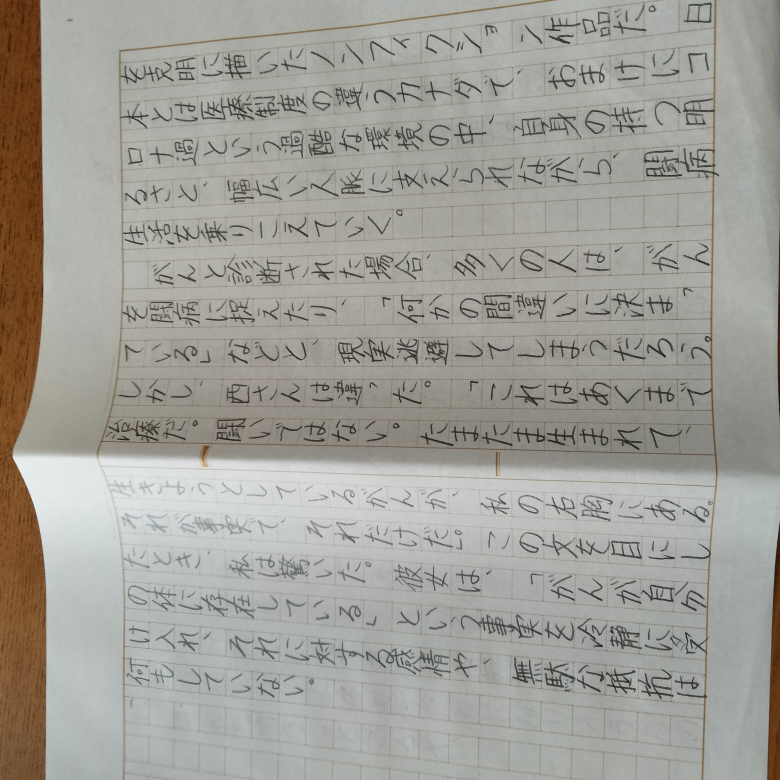 を克明に描いたノンフィクション作品だ。日
本とは医療制度の違うカナダで、おまけにコ
ロナ過という過酷な環境の中、自身の持つ明
るさと、幅広い人脈に支えられながら、闘病
生活を乗りこえていく。
がんと診断された場合、多くの人は、がん
を闘病に捉えたり、「何かの間違いに決まっ
ている」などと、現実逃避してしまうだろう。
しかし、西さんは違った。「これはあくまで
治療だ。闘いではない。たまたま生まれて、
生きようとしているがんが、私の右胸にある。
それが事実で、それだけだ。」この文を目にし
たとき、私は驚いた。彼女は、「がんが自分
の体に存在している」という事実を冷静に受
け入れ、それに対する感情や、無駄な抵抗は
何もしていない。